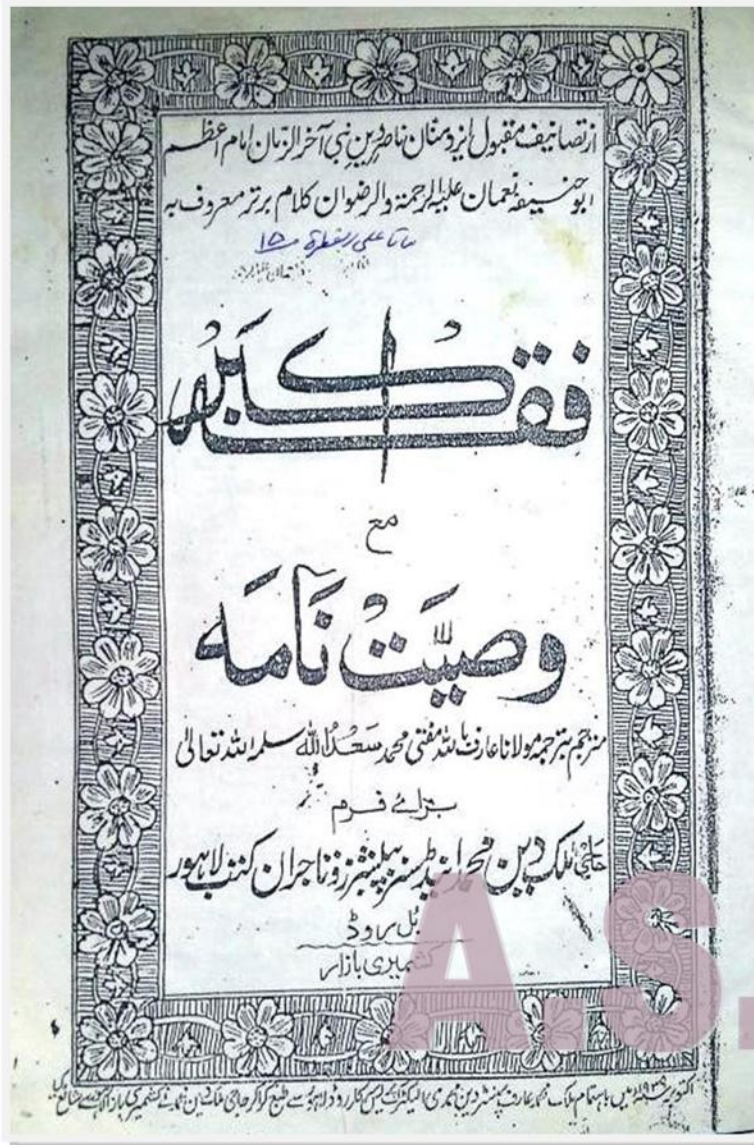 از تصانیف مقبول ایزد منان ناصر دین نبی آخر الزمان امام اعظم
ابو حنیفہ نعمان علیہ الرحمۃ والرضوان کلام برتر معروف بہ
ماتا علی
فقہ اکبر
مع
وصیت نامہ
مترجم بترجمہ مولانا عارف باللہ مفتی محمد سعد اللہ سلمہ اللہ تعالیٰ
برائے فرم
حاجی ملک دین محمد اینڈ سنز پبلیشرز و تاجران کتب لاہور
بل روڈ
کشمیری بازار
اکتوبر میں باہتمام ملک محمد عارف پرنٹر دین محمدی الیکٹرک پریس سرکلر روڈ لاہور سے طبع کرا کر حاجی ملک دین محمد نے کشمیری بازار لاہور سے شائع کیا
A.S.